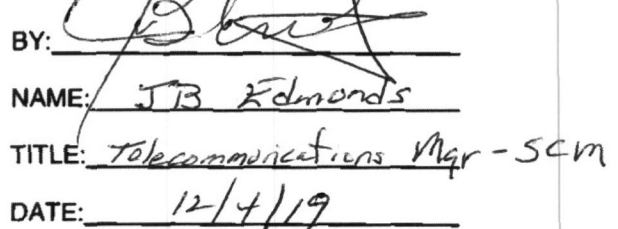 BY:
NAME: JB Edmonds
TITLE: Telecommunications Mgr - SCM
DATE: 12/4/19